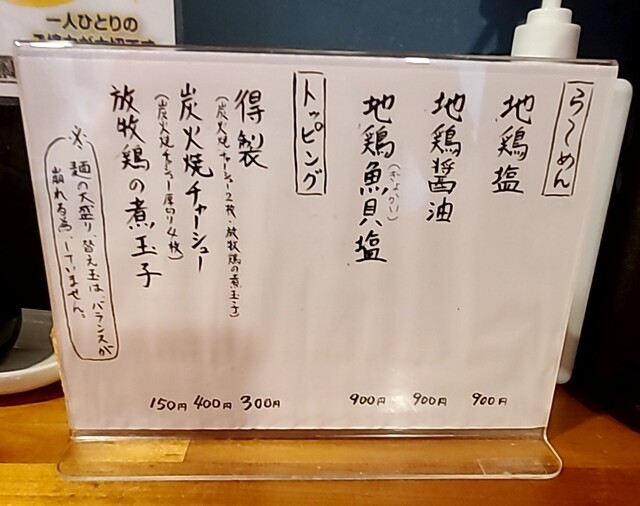 一人ひとりの
らーめん
地鶏塩
900円
地鶏醤油
900円
地鶏魚貝塩
(ぎょかい)
900円
トッピング
得製
(炭火焼チャーシュー2枚・放牧鶏の煮玉子)
300円
炭火焼チャーシュー
(炭火焼チャーシュー厚切り4枚)
400円
放牧鶏の煮玉子
150円
※麺の大盛り、替え玉は、バランスが
崩れる為、していません。